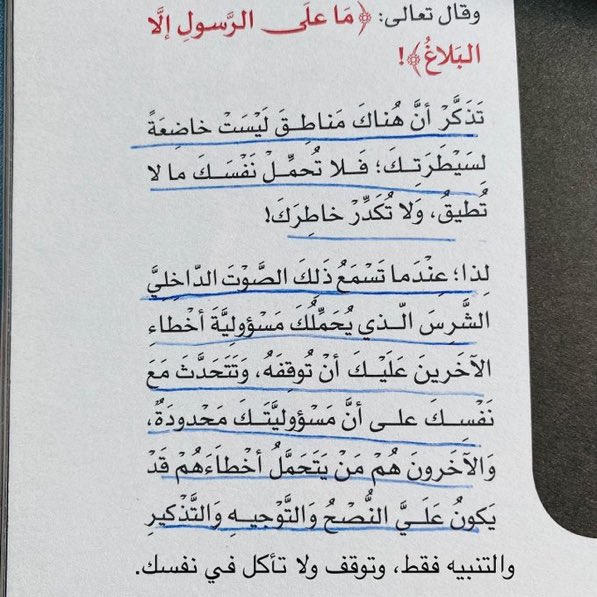 وقال تعالى: ﴿مَا عَلَى الرَّسولِ إلَّا
البَلاغُ﴾!
تَذَكَّرْ أنَّ هُناكَ مَناطِقَ لَيْسَتْ خاضِعَةً
لِسَيْطَرَتِكَ؛ فَلا تُحمِّلْ نَفْسَكَ ما لا
تُطيقُ، وَلا تُكَدِّرْ خاطِرَكَ!
لِذا؛ عِنْدَما تَسْمَعُ ذَلِكَ الصَّوْتَ الدّاخِليَّ
الشَّرِسَ الّذي يُحَمِّلُكَ مَسْؤوليَّةَ أخْطاءِ
الآخَرينَ عَلَيْكَ أنْ تُوقِفَهُ، وَتَتَحَدَّثَ مَعَ
نَفْسِكَ على أنَّ مَسْؤوليَّتَكَ مَحْدودَةٌ،
وَالآخَرونَ هُمْ مَنْ يَتَحَمَّلُ أخْطاءَهُمْ قَدْ
يَكونُ عَلَيَّ النُّصْحُ وَالتَّوْجيهِ وَالتَّذْكيرِ
والتنبيه فقط، وتوقف ولا تأكل في نفسك.